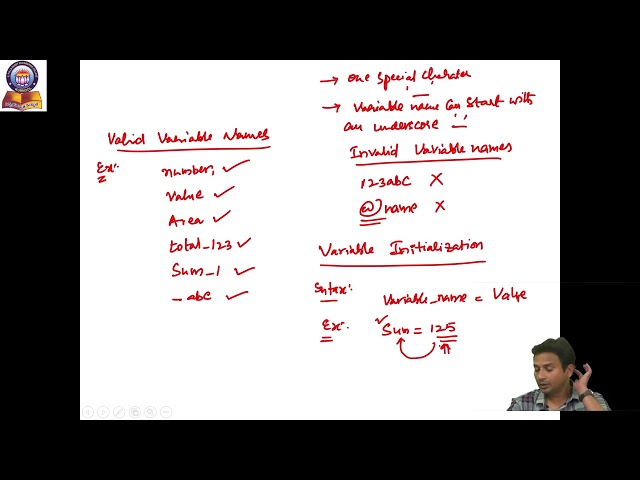 → one special charater
→ Variable name can start with
an underscore _
Valid Variable Names
Ex:- number, ✓
Value ✓
Area ✓
total_123 ✓
Sum_1 ✓
_abc ✓
Invalid Variable names
123abc X
@ name X
Variable Initialization
Syntax:-
Variable_name = Value
Ex:- ✓ Sum = 125